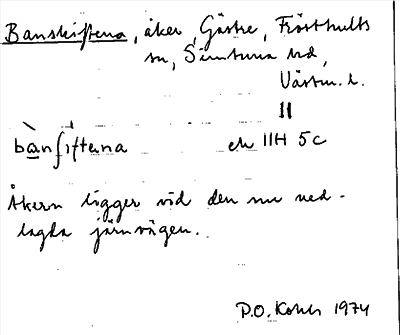 Banskiftena, åker, Gästre, Frösthults
sn, Simtuna hd,
Västm. l.
bànʃìftena ek 11H 5c
Åkern ligger vid den nu ned-
lagda järnvägen.
P.O. 1974